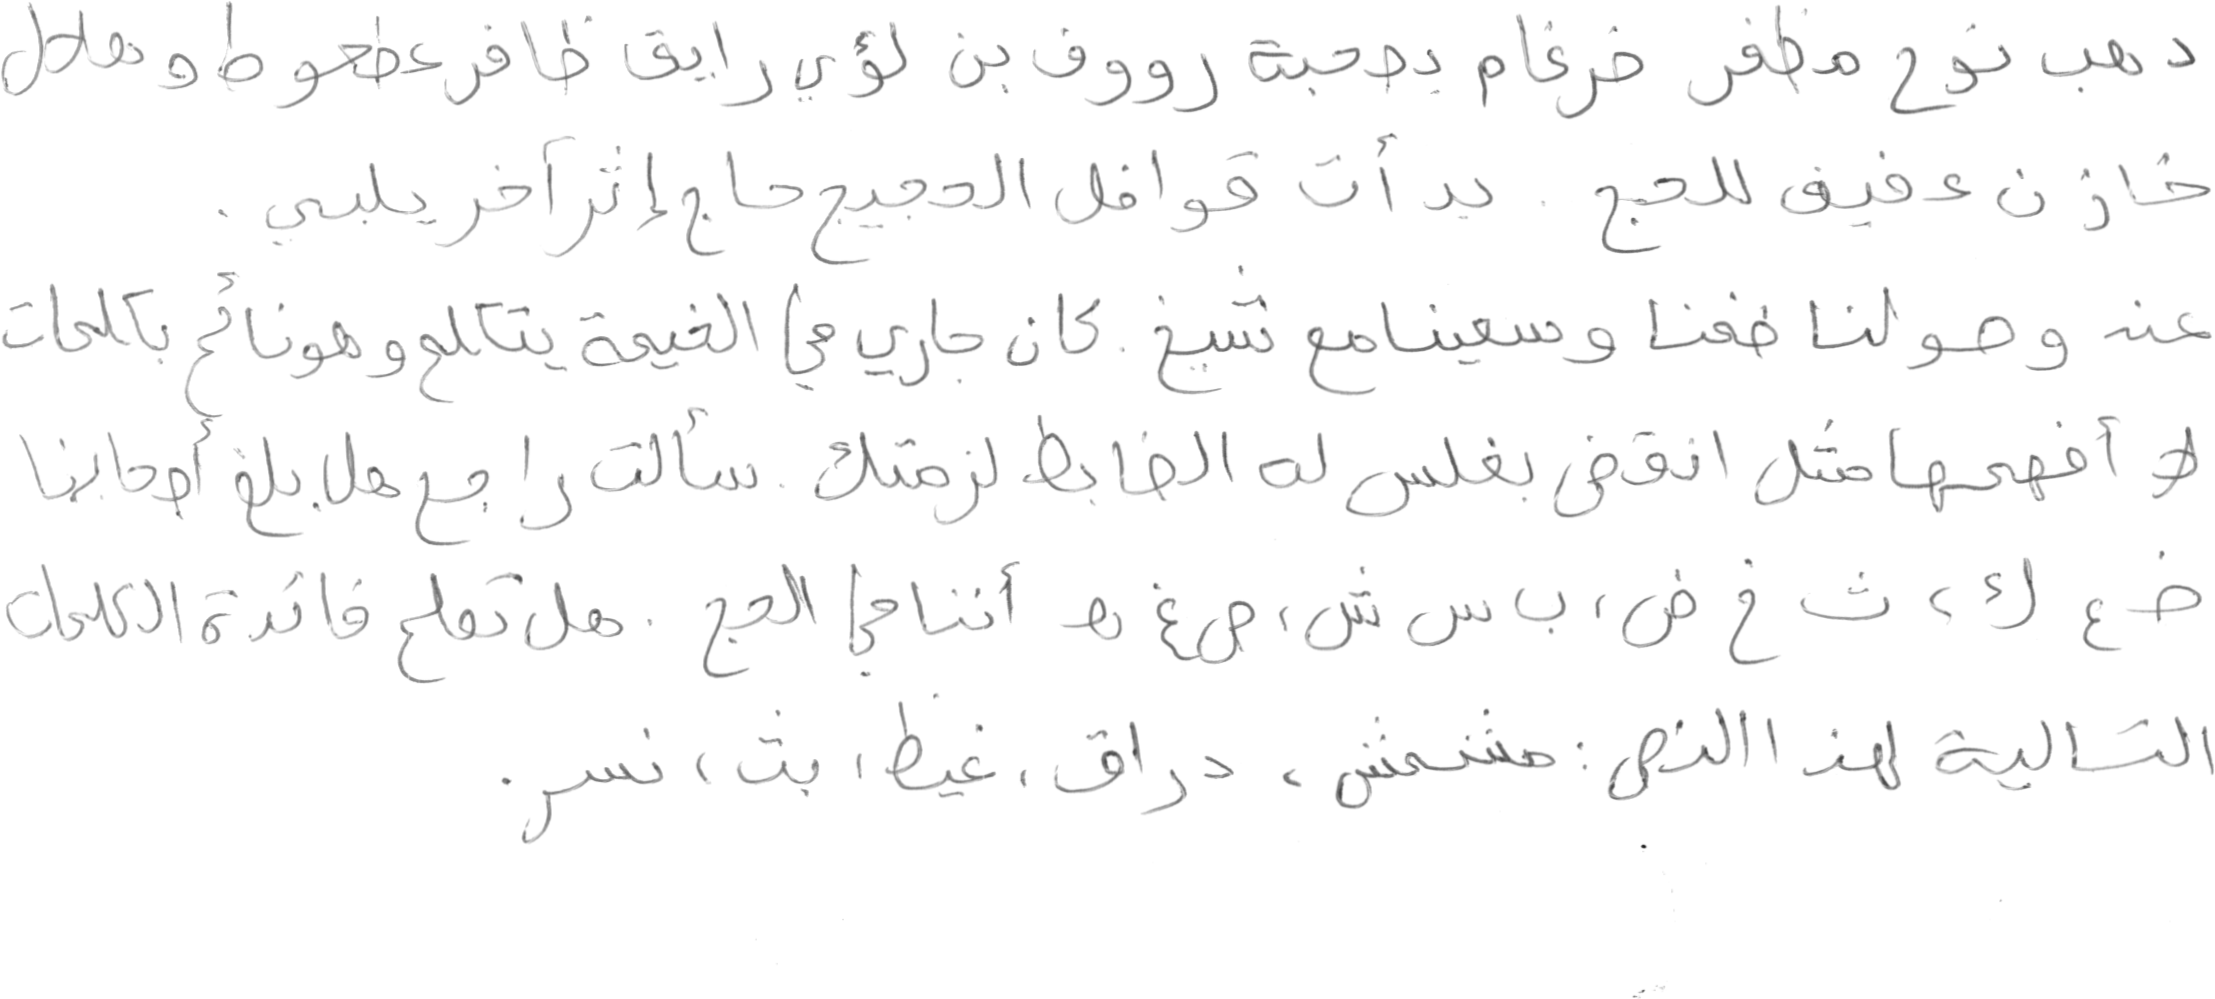 ذهب نوح مظفر ضرغام بصحبة رووف بن لؤي رايق ظافر عطعوط وهلال
خازن عفيف للحج . بدأت قوافل الحجيج حاج إثر آخر يلبي .
عند وصولنا طفنا وسعينا مع شيخ . كان جاري في الخيمة يتكلم وهو نائم بكلمات
لا أفهمها مثل انقض بغلس له الضابط لزمتك . سألت راجح هل بلغ أصحابنا
ض ع ك ، ث خ ض ، ب س ش ، ص غ ه أننا في الحج . هل تعلم فائدة الكلمات
التالية لهذا النص : مشمش ، دراق ، غيظ ، بث ، نسر .